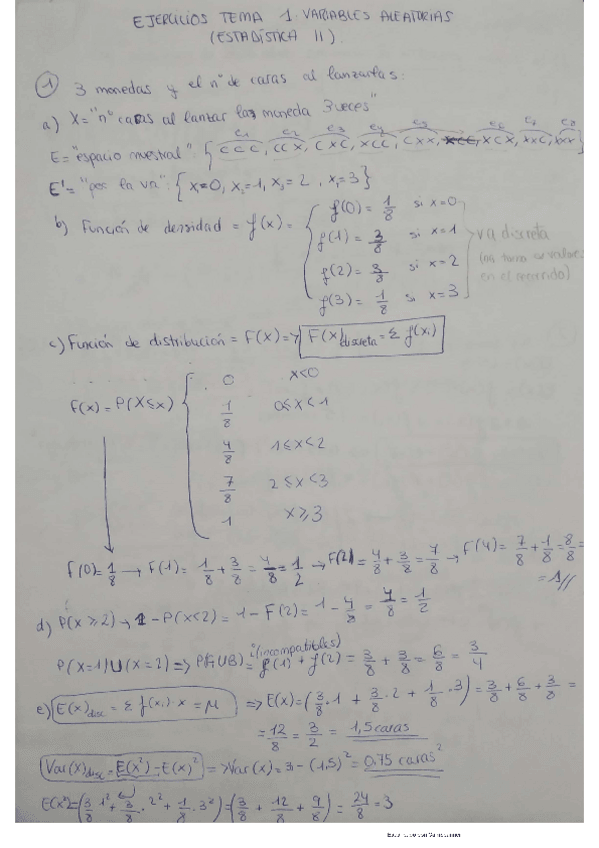 EJERCICIOS TEMA 1: VARIABLES ALEATORIAS
(ESTADÍSTICA II).
① 3 monedas y el nº de caras al lanzarlas:
a) X = "nº caras al lanzar la moneda 3 veces"
e₁ e₂ e₃ e₄ e₅ e₆ e₇ e₈
E = "espacio muestral": {CCC, CCX, CXC, XCC, CXX, XCX, XXC, XXX}
E' = "por la va": {x₁=0, x₂=1, x₃=2, x₄=3}
b) Función de densidad = f(x) =
f(0) = 1/8 si x=0
f(1) = 3/8 si x=1
f(2) = 3/8 si x=2
f(3) = 1/8 si x=3
va discreta
(na toma valores
en el recorrido)
c) Función de distribución = F(x) => F(x) discreta = Σ f(xi)
F(x) = P(X≤x)
0 x<0
1/8 0≤x<1
4/8 1≤x<2
7/8 2≤x<3
1 x≥3
F(0) = 1/8 → F(1) = 1/8 + 3/8 = 4/8 = 1/2 → F(2) = 4/8 + 3/8 = 7/8 → F(4) = 7/8 + 1/8 = 8/8 =
= 1//
d) P(x≥2) → 1 - P(x<2) = 1 - F(2) = 1 - 4/8 = 4/8 = 1/2
P(x=1) U (x=2) => P(AUB) = (incompatibles) f(1) + f(2) = 3/8 + 3/8 = 6/8 = 3/4
e) E(x) disc = Σ f(xi)·x = μ => E(x) = (3/8·1 + 3/8·2 + 1/8·3) = 3/8 + 6/8 + 3/8 =
= 12/8 = 3/2 = 1,5 caras
Var(x) disc = E(x²) - E(x)² => Var(x) = 3 - (1,5)² = 0,75 caras²
E(x²) = (3/8 1² + 3/8 · 2² + 1/8 · 3²) = (3/8 + 12/8 + 9/8) = 24/8 = 3